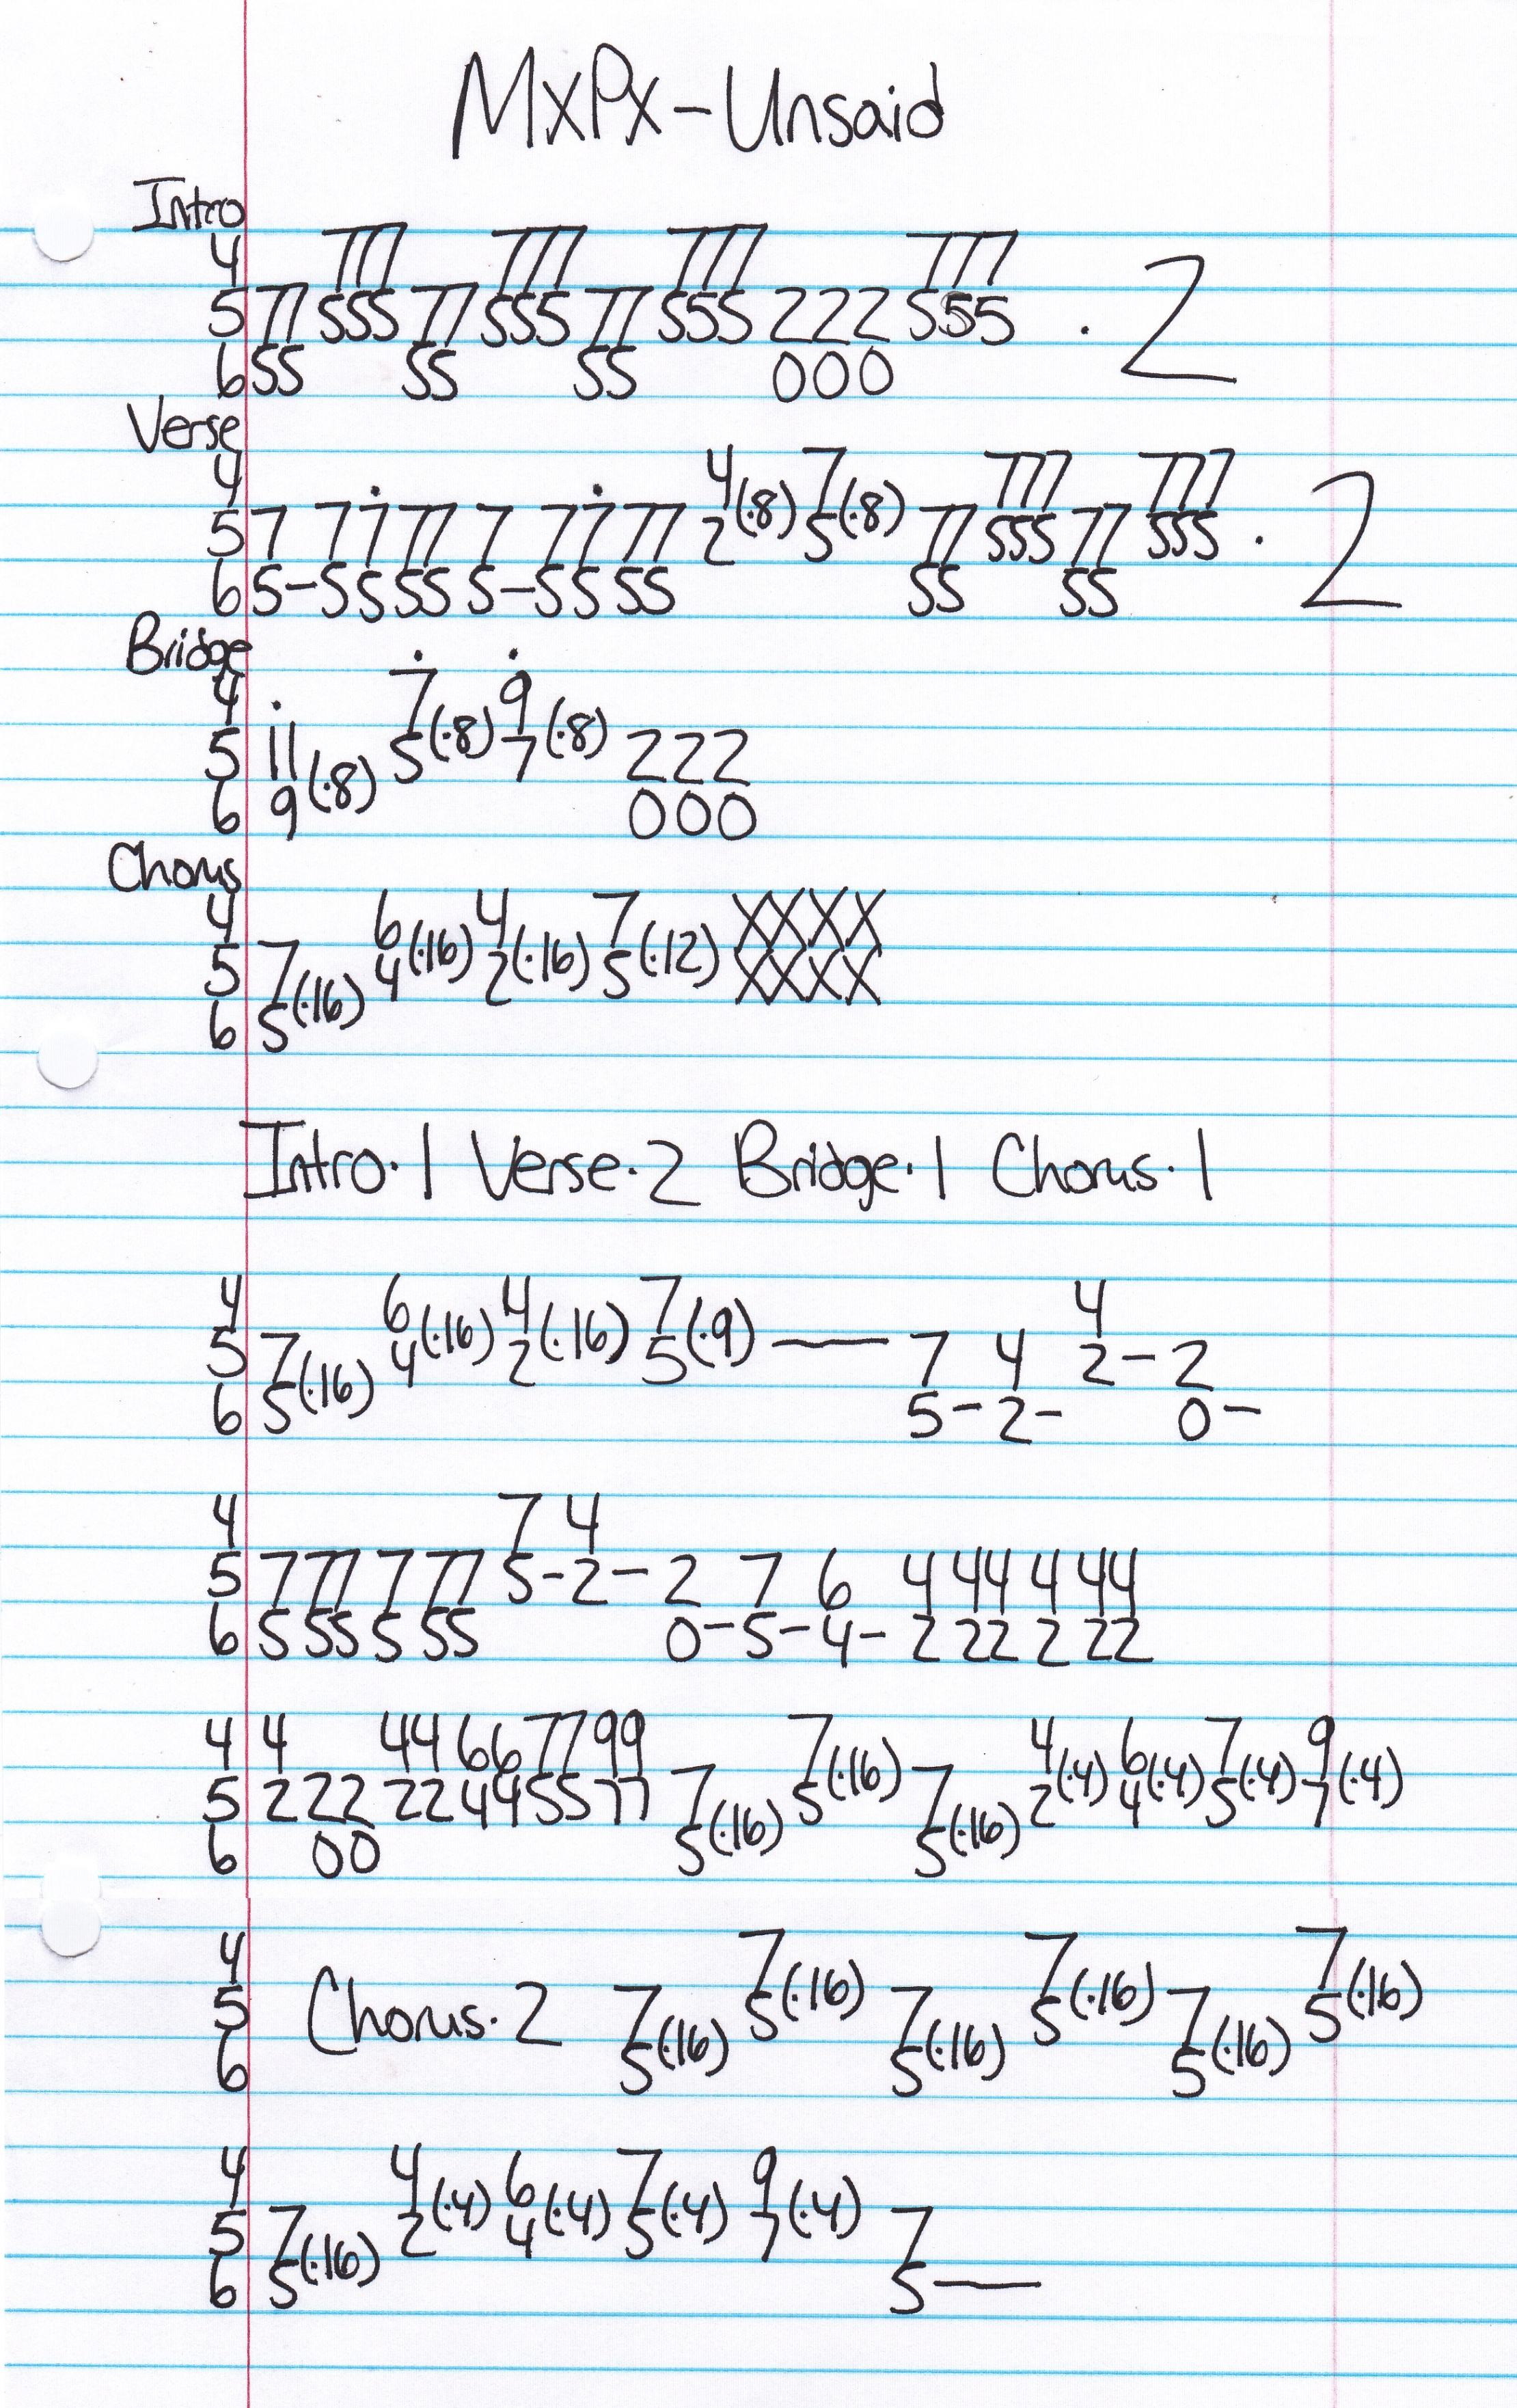 MxPx-Unsaid
Intro
4 777 777 777 777
5 77 555 77 555 77 555 222 555 . 2
6 55 55 55 000
Verse
4 4(·8) 7(·8) 777 777
5 7 7 7 77 7 7 7 77 2 5 77 555 77 555 . 2
6 5-5 5 55 5-5 5 55 55 55
Bridge
4 7(·8) 9(·8)
5 11 5 7 222
6 9(·8) 000
Chorus
4 6(·16) 4(·16) 7(·12) XXXX
5 7 4 2 5 XXXX
6 5(·16)
Intro·1 Verse·2 Bridge·1 Chorus·1
4 6(·16) 4(·16) 7(·9) 4
5 7 4 2 5 — 7 4 2- 2
6 5(·16) 5- 2- 0-
4 7 4
5 7 77 7 77 5-2- 2 7 6 4 44 4 44
6 5 55 5 55 0-5-4- 2 22 2 22
4 4 44 66 77 99 7(·16) 4(·4) 6(·4) 7(·4) 9(·4)
5 2 22 22 44 55 77 7 5 7 2 4 5 7
6 00 5(·16) 5(·16)
4 7(·16) 7(·16) 7(·16)
5 Chorus·2 7 5 7 5 7 5
6 5(·16) 5(·16) 5(·16)
4 4(·4) 6(·4) 7(·4) 9(·4)
5 7 2 4 5 7 7
6 5(·16) 5—